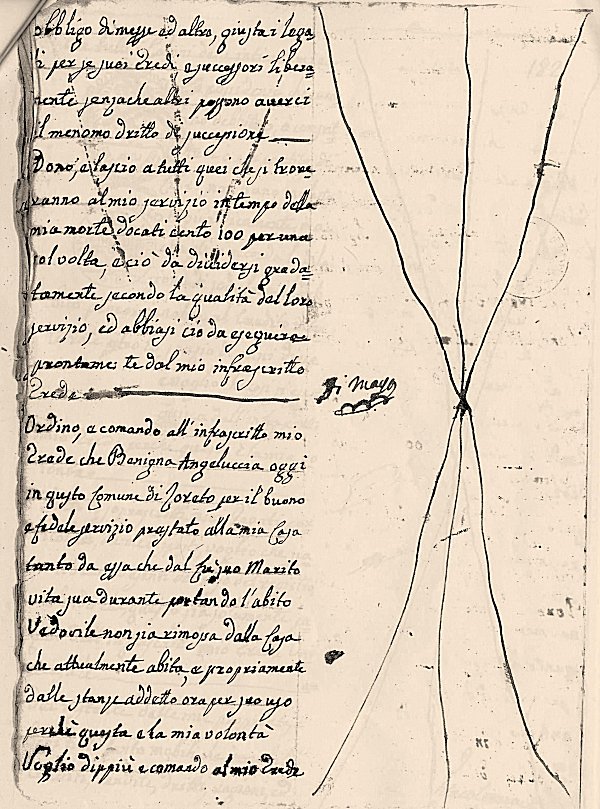 obbligo di messe ed altro, giusta i lega
ti per se suoi Eredi e successori libera=
mente senzache altri possono averci
il menomo dritto di successione
Dono, e lascio a tutti quei che si trove
ranno al mio servizio in tempo della
mia morte docati cento 100 per una
sol volta, e ciò da dividersi grada=
tamente secondo la qualità del loro
servizio, ed abbiasi ciò da eseguire
prontamente dal mio infrascritto
Erede
Ordino, e comando all'infrascritto mio
Erede che Benigna Angeluccia oggi
in questo Comune di Loreto per il buono
e fedele servizio prestato alla mia Casa
tanto da essa che dal fu suo Marito
vita sua durante portando l'abito
Vedovile non sia rimossa dalla Casa
che attualmente abita, e propriamente
dalle stanze addetto ora per suo uso
perchè questa e la mia volontà
Voglio dippiù e comando al mio Erede